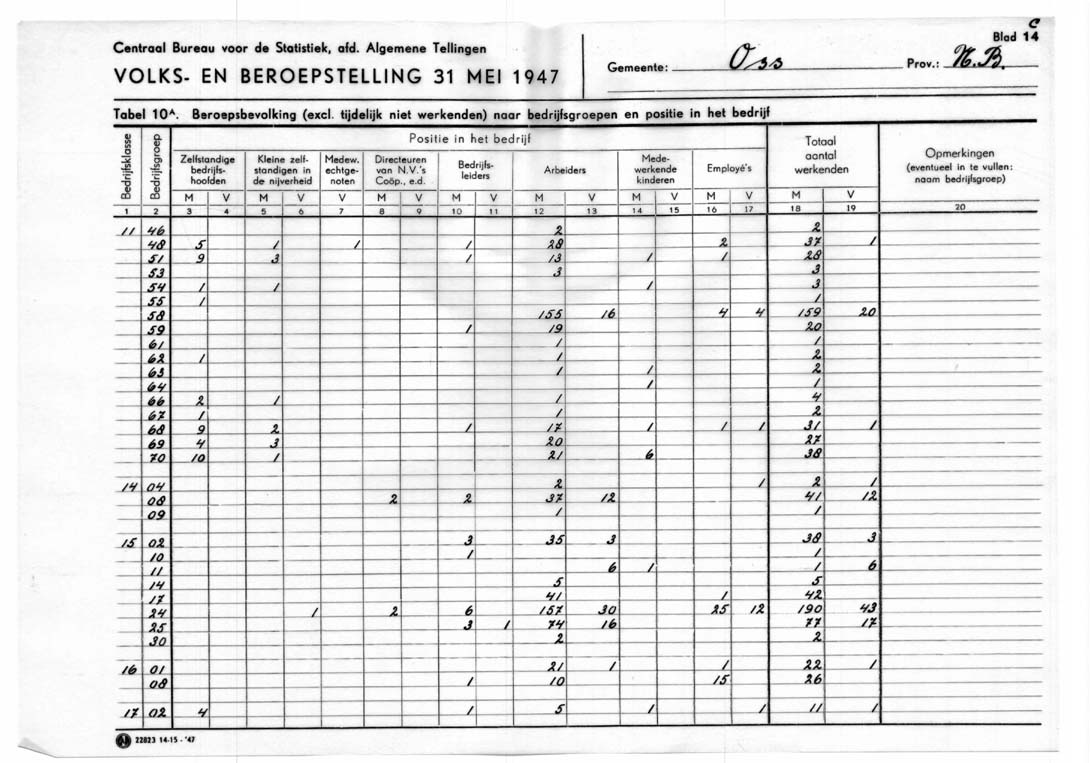 C
Blad 14
Centraal Bureau voor de Statistiek, afd. Algemene Tellingen
VOLKS- EN BEROEPSTELLING 31 MEI 1947
Gemeente: Oss Prov.: N.B.
Tabel 10A. Beroepsbevolking (excl. tijdelijk niet werkenden) naar bedrijfsgroepen en positie in het bedrijf
Bedrijfsklasse Bedrijfsgroep Positie in het bedrijf Totaal aantal werkenden Opmerkingen (eventueel in te vullen: naam bedrijfsgroep)
Zelfstandige bedrijfs- hoofden Kleine zelf- standigen in de nijverheid Medew. echtge- noten Directeuren van N.V.'s Coöp., e.d. Bedrijfs- leiders Arbeiders Mede- werkende kinderen Employé's
M V M V V M V M V M V M V M V M V
1 2 3 4 5 6 7 8 9 10 11 12 13 14 15 16 17 18 19 20
11 46 2 2
48 5 1 1 1 28 2 37 1
51 9 3 1 13 1 1 28
53 3 3
54 1 1 1 3
55 1 1
58 155 16 4 4 159 20
59 1 19 20
61 1 1
62 1 1 2
63 1 1 2
64 1 1
66 2 1 1 4
67 1 1 2
68 9 2 1 17 1 1 1 31 1
69 4 3 20 27
70 10 1 21 6 38
14 04 2 1 2 1
08 2 2 37 12 41 12
09 1 1
15 02 3 35 3 38 3
10 1 1
11 6 1 1 6
14 5 5
17 41 1 42
24 1 2 6 157 30 25 12 190 43
25 3 1 74 16 77 17
30 2 2
16 01 21 1 1 22 1
08 1 10 15 26
17 02 4 1 5 1 1 11 1
22823 14-15 - '47